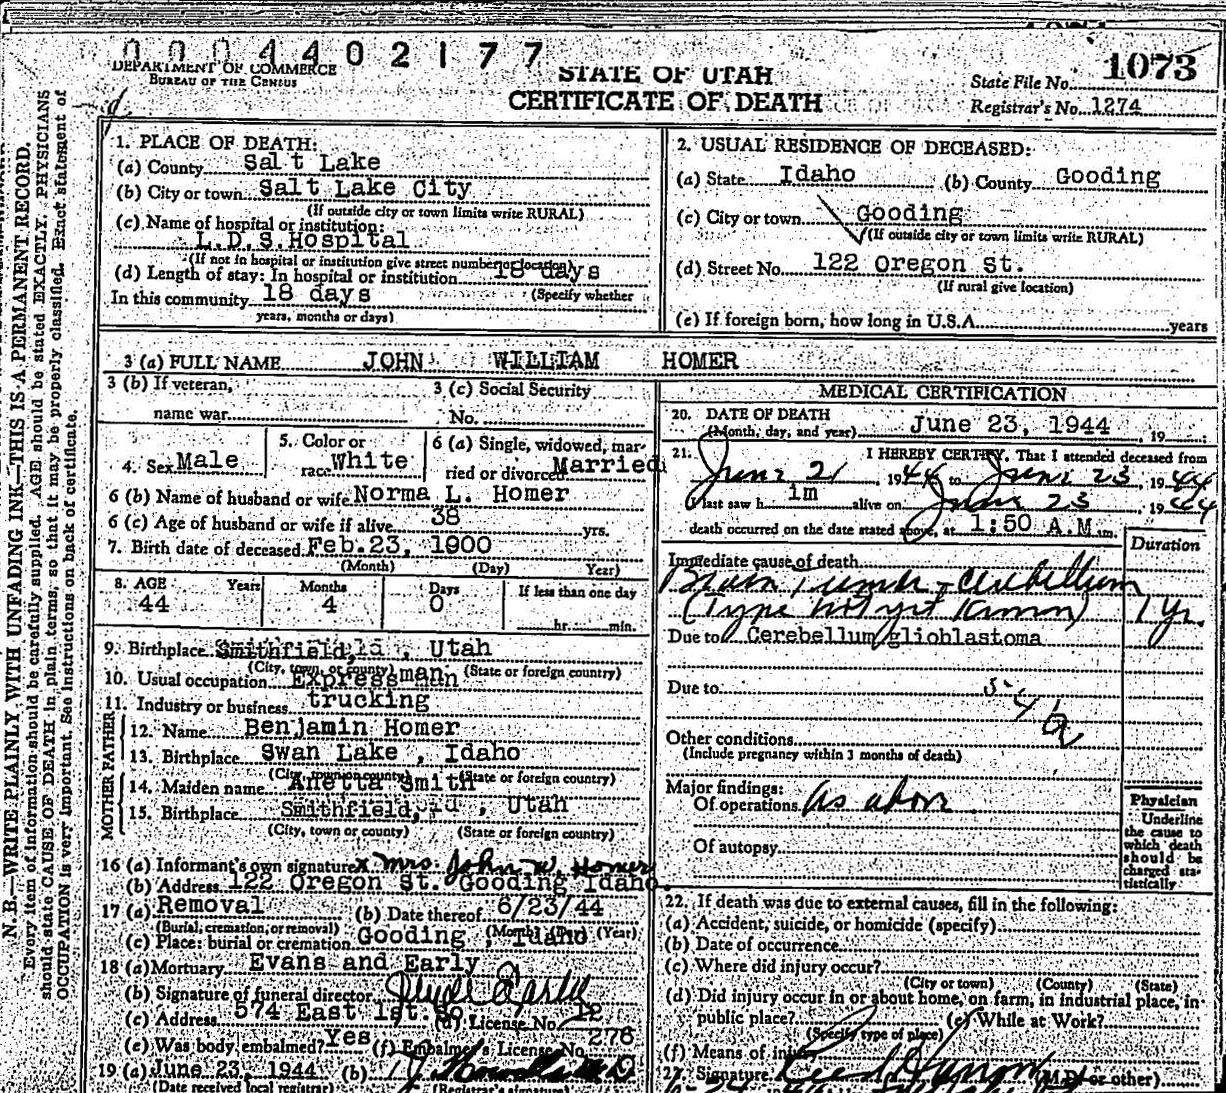 0004402177
DEPARTMENT OF COMMERCE
BUREAU OF THE CENSUS
STATE OF UTAH
CERTIFICATE OF DEATH
State File No. 1073
Registrar's No. 1274
N. B.—WRITE PLAINLY, WITH UNFADING INK—THIS IS A PERMANENT RECORD.
Every item of information should be carefully supplied. AGE should be stated EXACTLY. PHYSICIANS
should state CAUSE OF DEATH in plain terms, so that it may be properly classified. Exact statement of
OCCUPATION is very important. See instructions on back of certificate.
1. PLACE OF DEATH:
(a) County Salt Lake
(b) City or town Salt Lake City
(If outside city or town limits write RURAL)
(c) Name of hospital or institution:
L.D.S. Hospital
(If not in hospital or institution give street number or location)
(d) Length of stay: In hospital or institution 18 days
In this community 18 days (Specify whether
years, months or days)
2. USUAL RESIDENCE OF DECEASED:
(a) State Idaho (b) County Gooding
(c) City or town Gooding
(If outside city or town limits write RURAL)
(d) Street No. 122 Oregon St.
(If rural give location)
(e) If foreign born, how long in U.S.A. years
3 (a) FULL NAME JOHN WILLIAM HOMER
3 (b) If veteran,
name war
3 (c) Social Security
No.
4. Sex Male
5. Color or
race White
6 (a) Single, widowed, mar-
ried or divorced Married
6 (b) Name of husband or wife Norma L. Homer
6 (c) Age of husband or wife if alive 38 yrs.
7. Birth date of deceased Feb. 23, 1900
(Month) (Day) Year)
8. AGE Years Months Days If less than one day
44 4 0
hr. min.
9. Birthplace Smithfield, Utah
(City, town, or county) (State or foreign country)
10. Usual occupation Expressman
11. Industry or business trucking
FATHER
12. Name Benjamin Homer
13. Birthplace Swan Lake, Idaho
(City, town or county) (State or foreign country)
MOTHER
14. Maiden name Anetta Smith
15. Birthplace Smithfield, Utah
(City, town or county) (State or foreign country)
16 (a) Informant's own signature x Mrs. John W. Homer
(b) Address 122 Oregon St. Gooding Idaho.
17 (a) Removal (b) Date thereof 6/23/44
(Burial, cremation, or removal) (Month) (Day) (Year)
(c) Place: burial or cremation Gooding, Idaho
18 (a) Mortuary Evans and Early
(b) Signature of funeral director
(c) Address 574 East 1st. So. (d) License No. 12
(e) Was body embalmed? Yes (f) Embalmer's License No. 276
19 (a) June 23, 1944 (b) M D
(Date received local registrar) (Registrar's signature)
MEDICAL CERTIFICATION
20. DATE OF DEATH
(Month, day, and year) June 23, 1944, 19
21. I HEREBY CERTIFY, That I attended deceased from
June 21, 1944 to June 23, 1944
I last saw him alive on June 23, 1944
death occurred on the date stated above, at 1:50 A.M. m.
Duration
Immediate cause of death
Brain Tumor - Cerebellum
(Type not yet known) 1 yr.
Due to Cerebellum glioblastoma
Due to
Other conditions
(Include pregnancy within 3 months of death)
Major findings:
Of operations As above
Of autopsy
Physician
Underline
the cause to
which death
should be
charged sta-
tistically
22. If death was due to external causes, fill in the following:
(a) Accident, suicide, or homicide (specify)
(b) Date of occurrence
(c) Where did injury occur?
(City or town) (County) (State)
(d) Did injury occur in or about home, on farm, in industrial place, in
public place? (e) While at Work?
(Specify type of place)
(f) Means of injury
Signature (M.D. or other)